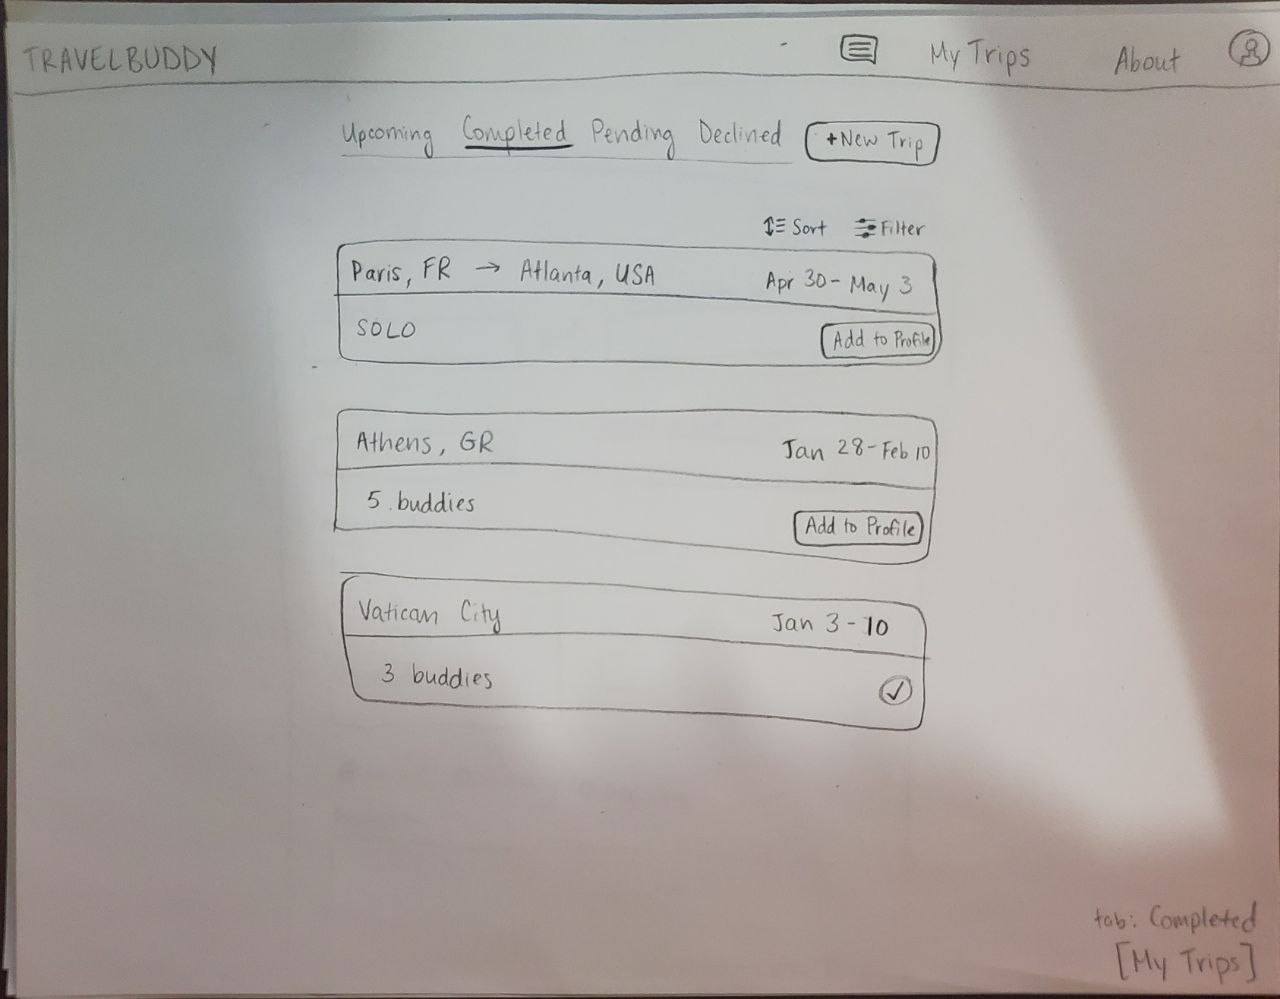 TRAVELBUDDY My Trips About
Upcoming Completed Pending Declined +New Trip
Sort Filter
Paris, FR → Atlanta, USA Apr 30 - May 3
SOLO Add to Profile
Athens, GR Jan 28 - Feb 10
5 buddies Add to Profile
Vatican City Jan 3 - 10
3 buddies
tab: Completed
[My Trips]